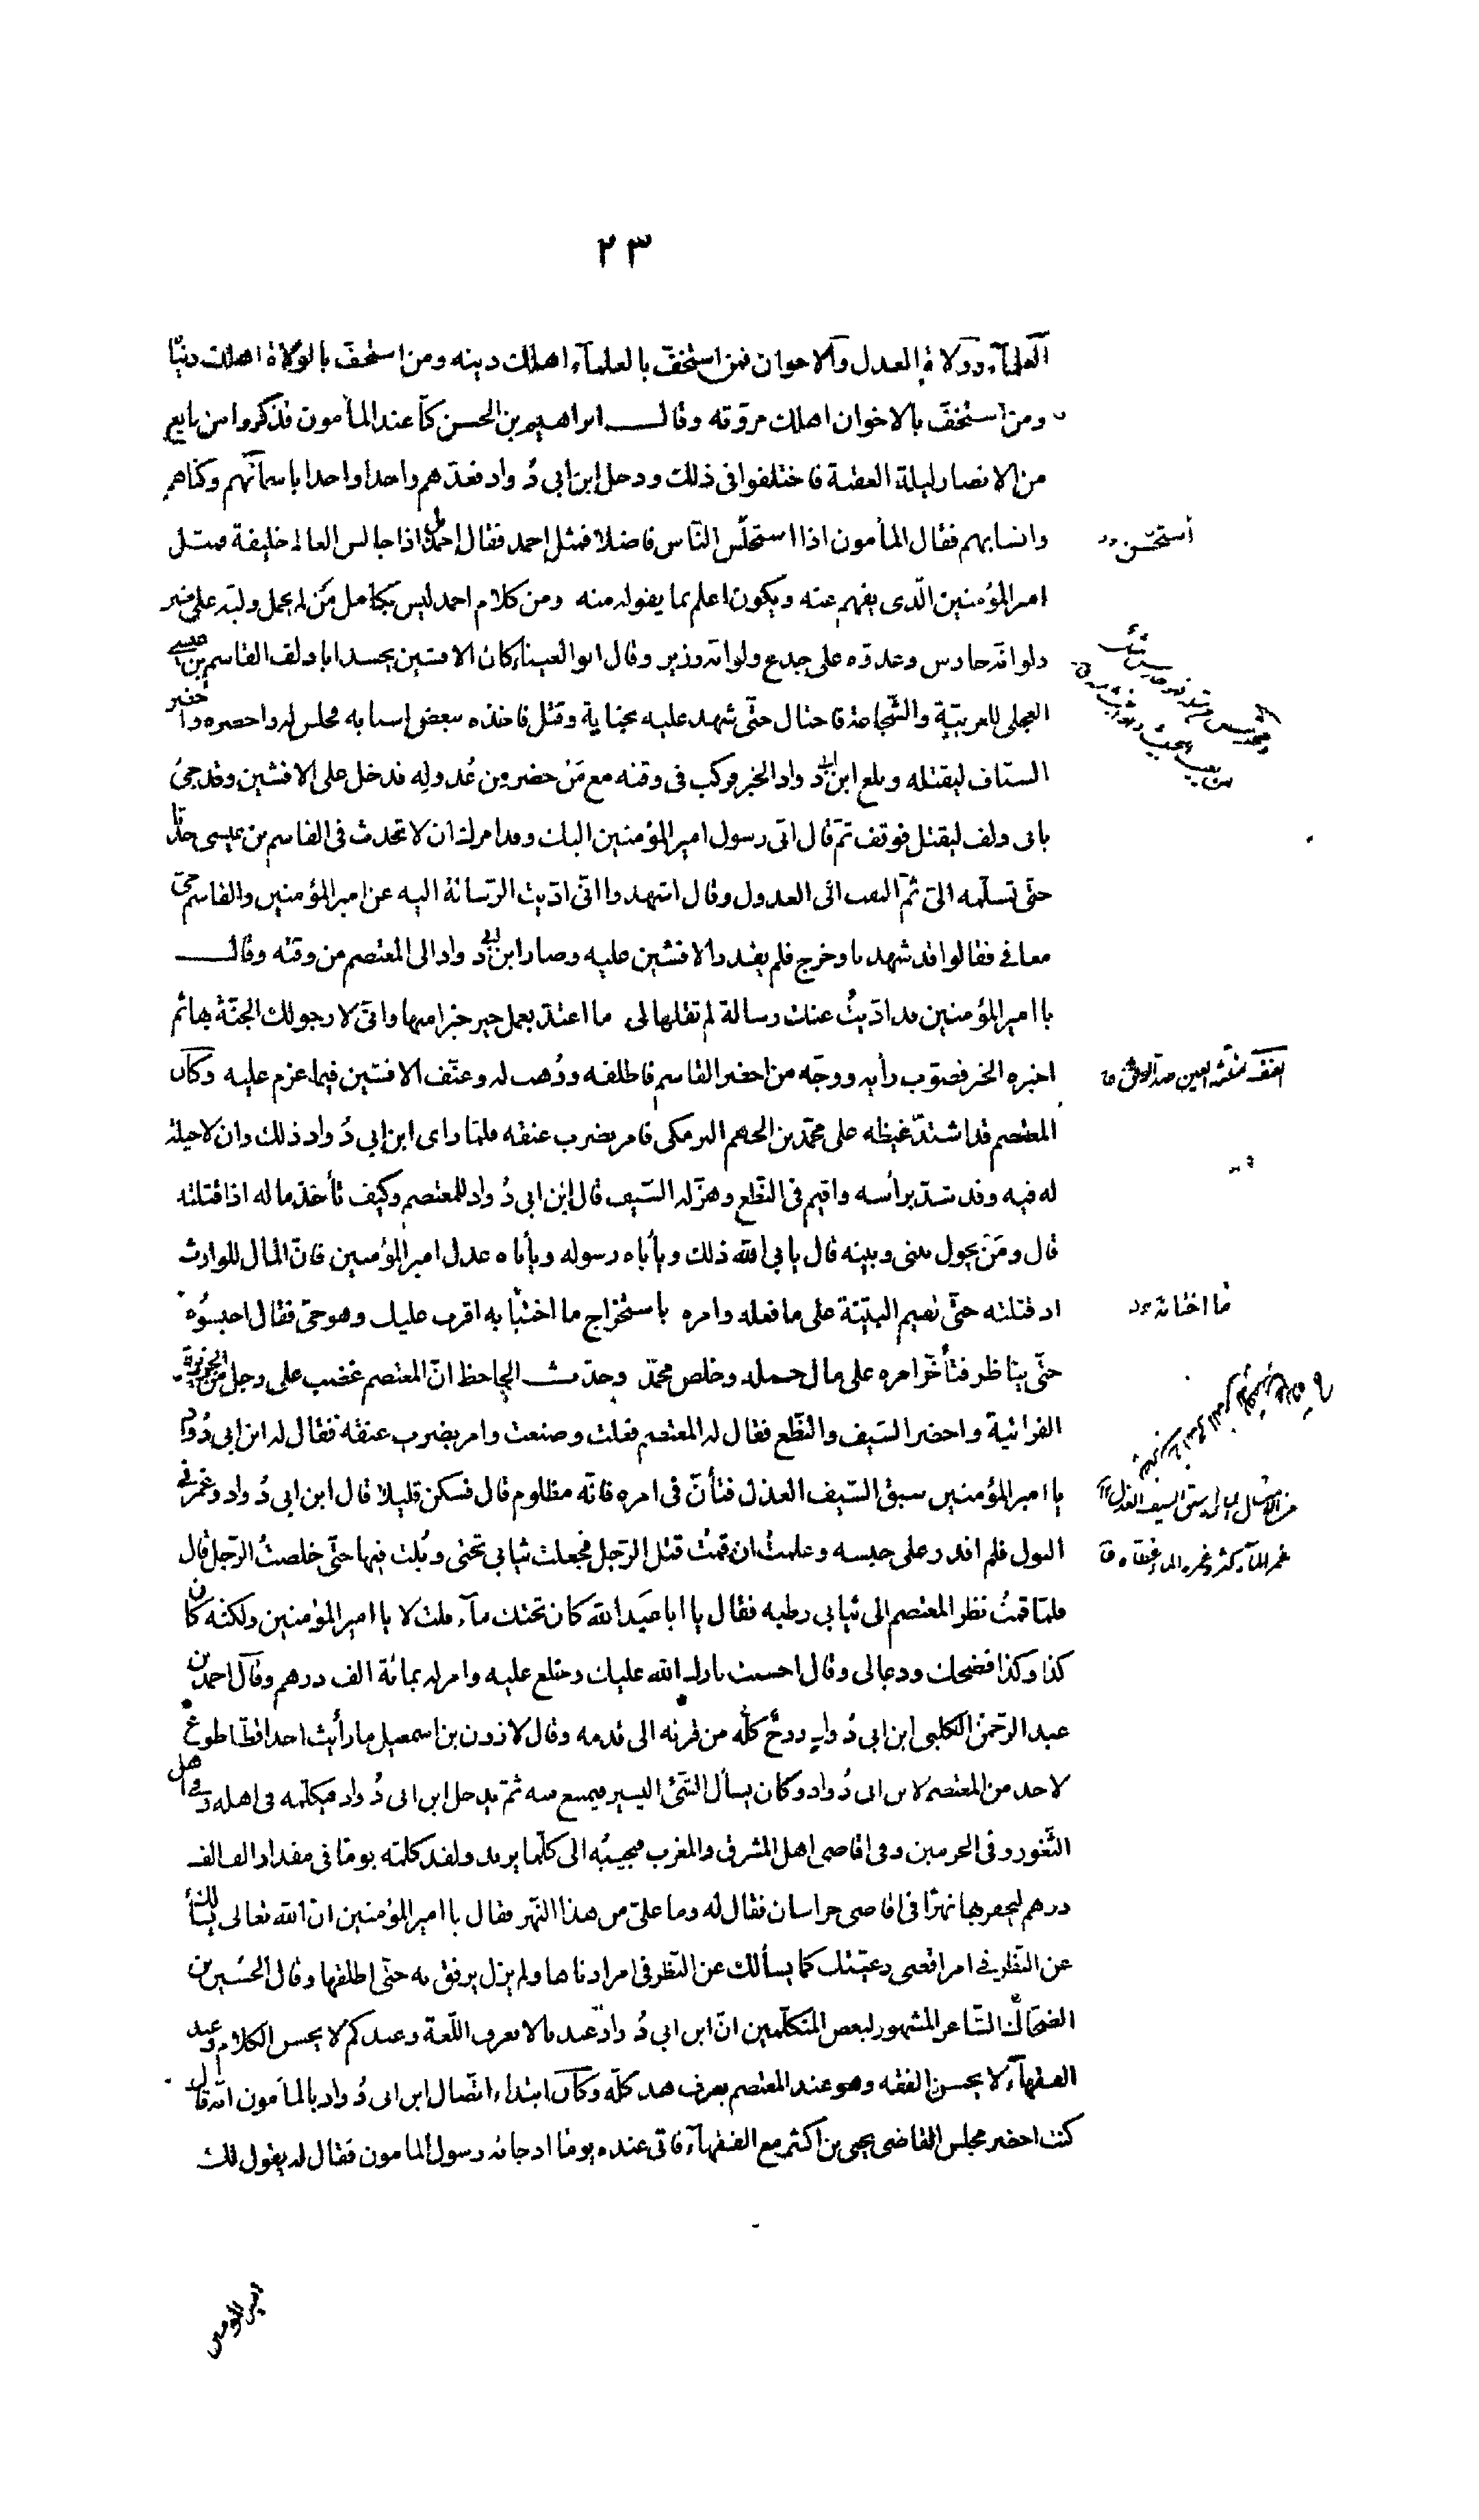 ٢٣
العلمآء وولاة العدل والاخوان فمن استخفّ بالعلمآء اهلك دينه ومن استخفّ بالولاة اهلك دنيا
ه ومن استخفّ بالاخوان اهلك مروّته وقال ابراهيم بن الحسن كنّا عند المأمون فذكروا من بايع
من الانصار ليلة العقبة فاختلفوا فى ذلك ودخل ابن ابى دُواد فعدّهم واحدا واحدا باسمآئهم وكناهم
وانسابهم فقال المأمون اذا استجلس النّاس فاضلا فمثل احمد فقال احمد بل اذا جالس العالم خليفة فمثل
امير المؤمنين الّذى يفهم عنه ويكون اعلم بما يقوله منه ومن كلام احمد ليس بكامل من لم يحمل وليّه على منبر
ولو انّه حارس وعدوّه على جذع ولو انّه وزير وقال ابو العيناء كان الافشين يحسد ابا دلف القاسم بن عيسى
العجلى للعربيّة والشّجاعة فاحتال حتّى شهد عليه بجناية وقتل فاخذه ببعض اسبابه مجلس له واحضره واحضر
السيّاف ليقتله وبلغ ابن ابى دُواد الخبر فركب فى وقته مع مَن حضر من عُدوله فدخل على الافشين وقد جئ
بابى دلف ليقتل فوقف ثمّ قال انّى رسول امير المؤمنين اليك وقد امرك ان لا تحدث فى القاسم بن عيسى حدثا
حتّى تسلّمه الىّ ثمّ التفت الى العدول وقال اشهدوا انّى ادّيت الرّسالة اليه عن امير المؤمنين والقاسم حىّ
معافى فقالوا قد شهدنا وخرج فلم يقدر الافشين عليه وصار ابن ابى دُواد الى المعتصم من وقته وقال
يا امير المؤمنين قد ادّيتُ عنك رسالة لم تقلها لى ما اعتدّ بعمل خير خيرا منها وانّى لارجو لك الجنّة بها ثم
اخبره الخبر فصوّب رأيه ووجّه من احضر القاسم فاطلقه ووهب له وعنّف الافشين فيما عزم عليه وكان
المعتصم قد اشتدّ غيظه على محمّد بن الجهم البرمكى فامر بضرب عنقه فلمّا راى ابن ابى دُواد ذلك وان لا حيلة
له فيه وقد شدّ برأسه واقيم فى النّطع وهزّ له السّيف قال ابن ابى دُواد للمعتصم وكيف تأخذ ماله اذا قتلته
قال ومَن يحول بينى وبينه قال يابى الله ذلك ويأباه رسوله ويأباه عدل امير المؤمنين فانّ المال للوارث
اذ قتلته حتّى تقيم البيّنة على ما فعله وامره باستخراج ما اختبأ به اقرب عليك وهو حىّ فقال احبسُوه
حتّى يناظر فتأخّر امره على مال حمله وخلص محمّد وحدّث الجاحظ انّ المعتصم غضب على رجل من الجزيرة
الفراتية واحضر السّيف والنّطع فقال له المعتصم فعلت وصنعت وامر بضرب عنقه فقال له ابن ابى دُواد
يا امير المؤمنين سبق السّيف العذل فتأنّ فى امره فانّه مظلوم قال فسكن قليلا قال ابن ابى دُواد وغمرنى
البول فلم اقدر على حبسه وعلمتُ ان قمتُ قتل الرّجل فجعلت ثيابى تحتى وبُلت فيها حتّى خلصتُ الرّجل قال
فلمّا قمتُ نظر المعتصم الى ثيابى رطبه فقال يا ابا عبد الله كان تحتك مآء قلت لا يا امير المؤمنين ولكنّه كان
كذا وكذا فضحك ودعا لى وقال احسنت بارك الله عليك وخلع عليه وامر له بمائة الف درهم وقال احمد بن
عبد الرّحمن الكلبى ابن ابى دُواد روحٌ كلّه من قرنه الى قدمه وقال لازون بن اسمعيل ما رأيت احدا قطّ اطوع
لاحد من المعتصم لابن ابى دُواد وكان يسأل الشّئ اليسير فيمتنع منه ثمّ يدخل ابن ابى دُواد فيكلّمه فى اهله وفى اهل
الثّغور وفى الحرمين وفى اقاصى اهل المشرق والمغرب فيجيبُه الى كلّما يريد ولقد كلمته يومًا فى مقدار الف الف
درهم ليحفر بها نهرًا فى اقاصى خراسان فقال له وما علىّ من هذا النّهر فقال يا امير المؤمنين انّ الله تعالى يسألك
عن النّظر فى امر اقصى رعيّتك كما يسألك عن النّظر فى امر ادناها ولم يزل يرفق به حتّى اطلقها وقال الحسين بن
الضحّاك الشّاعر المشهور لبعض المتكلّمين انّ ابن ابى دُواد عندنا لا يعرف اللّغة وعندكم لا يحسن الكلام وعند
الفقهآء لا يحسن الفقه وهو عند المعتصم يعرف هذا كلّه وكان ابتداء اتّصال ابن ابى دُواد بالمأمون انّه قال
كنت احضر مجلس القاضى يحيى بن اكثم مع الفقهآء فانّى عنده يومًا اذ جائه رسول المامون فقال له يقول لك
استحسن
العنف مثلثة العين ضد الرفق ق
ما اختانه
سبق السيف العذل
غمر المآء كثر وغمره المآء غطاه ق
امير المؤمنين